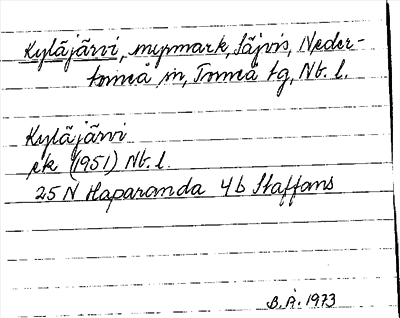 Kyläjärvi, myrmark, Säjvis, Neder-
torneå sn, Torneå tg, Nb. l.
Kyläjärvi
ek (1951) Nb. l.
25 N Haparanda 4b Staffans
B. Å. 1973